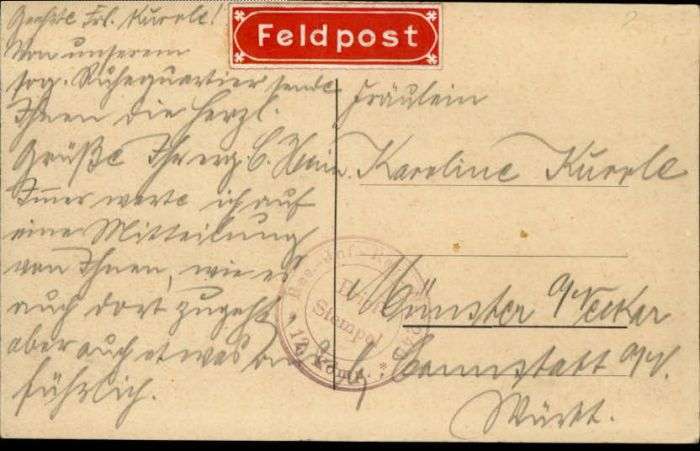 Geehrte Frl. Kurrle!
Von unserem
sog. Ruhequartier sende
Ihnen die herzl.
Grüße Ihr erg. C. Hain.
Immer warte ich auf
eine Mitteilung
von Ihnen, wie es
auch dort zugeht
aber auch etwas
führlich.
Feldpost
Fräulein
Karoline Kurrle
Münster a/Neckar
b. Cannstatt a/N.
Württ.
Res. Inf.
Stempel
12. Komp.